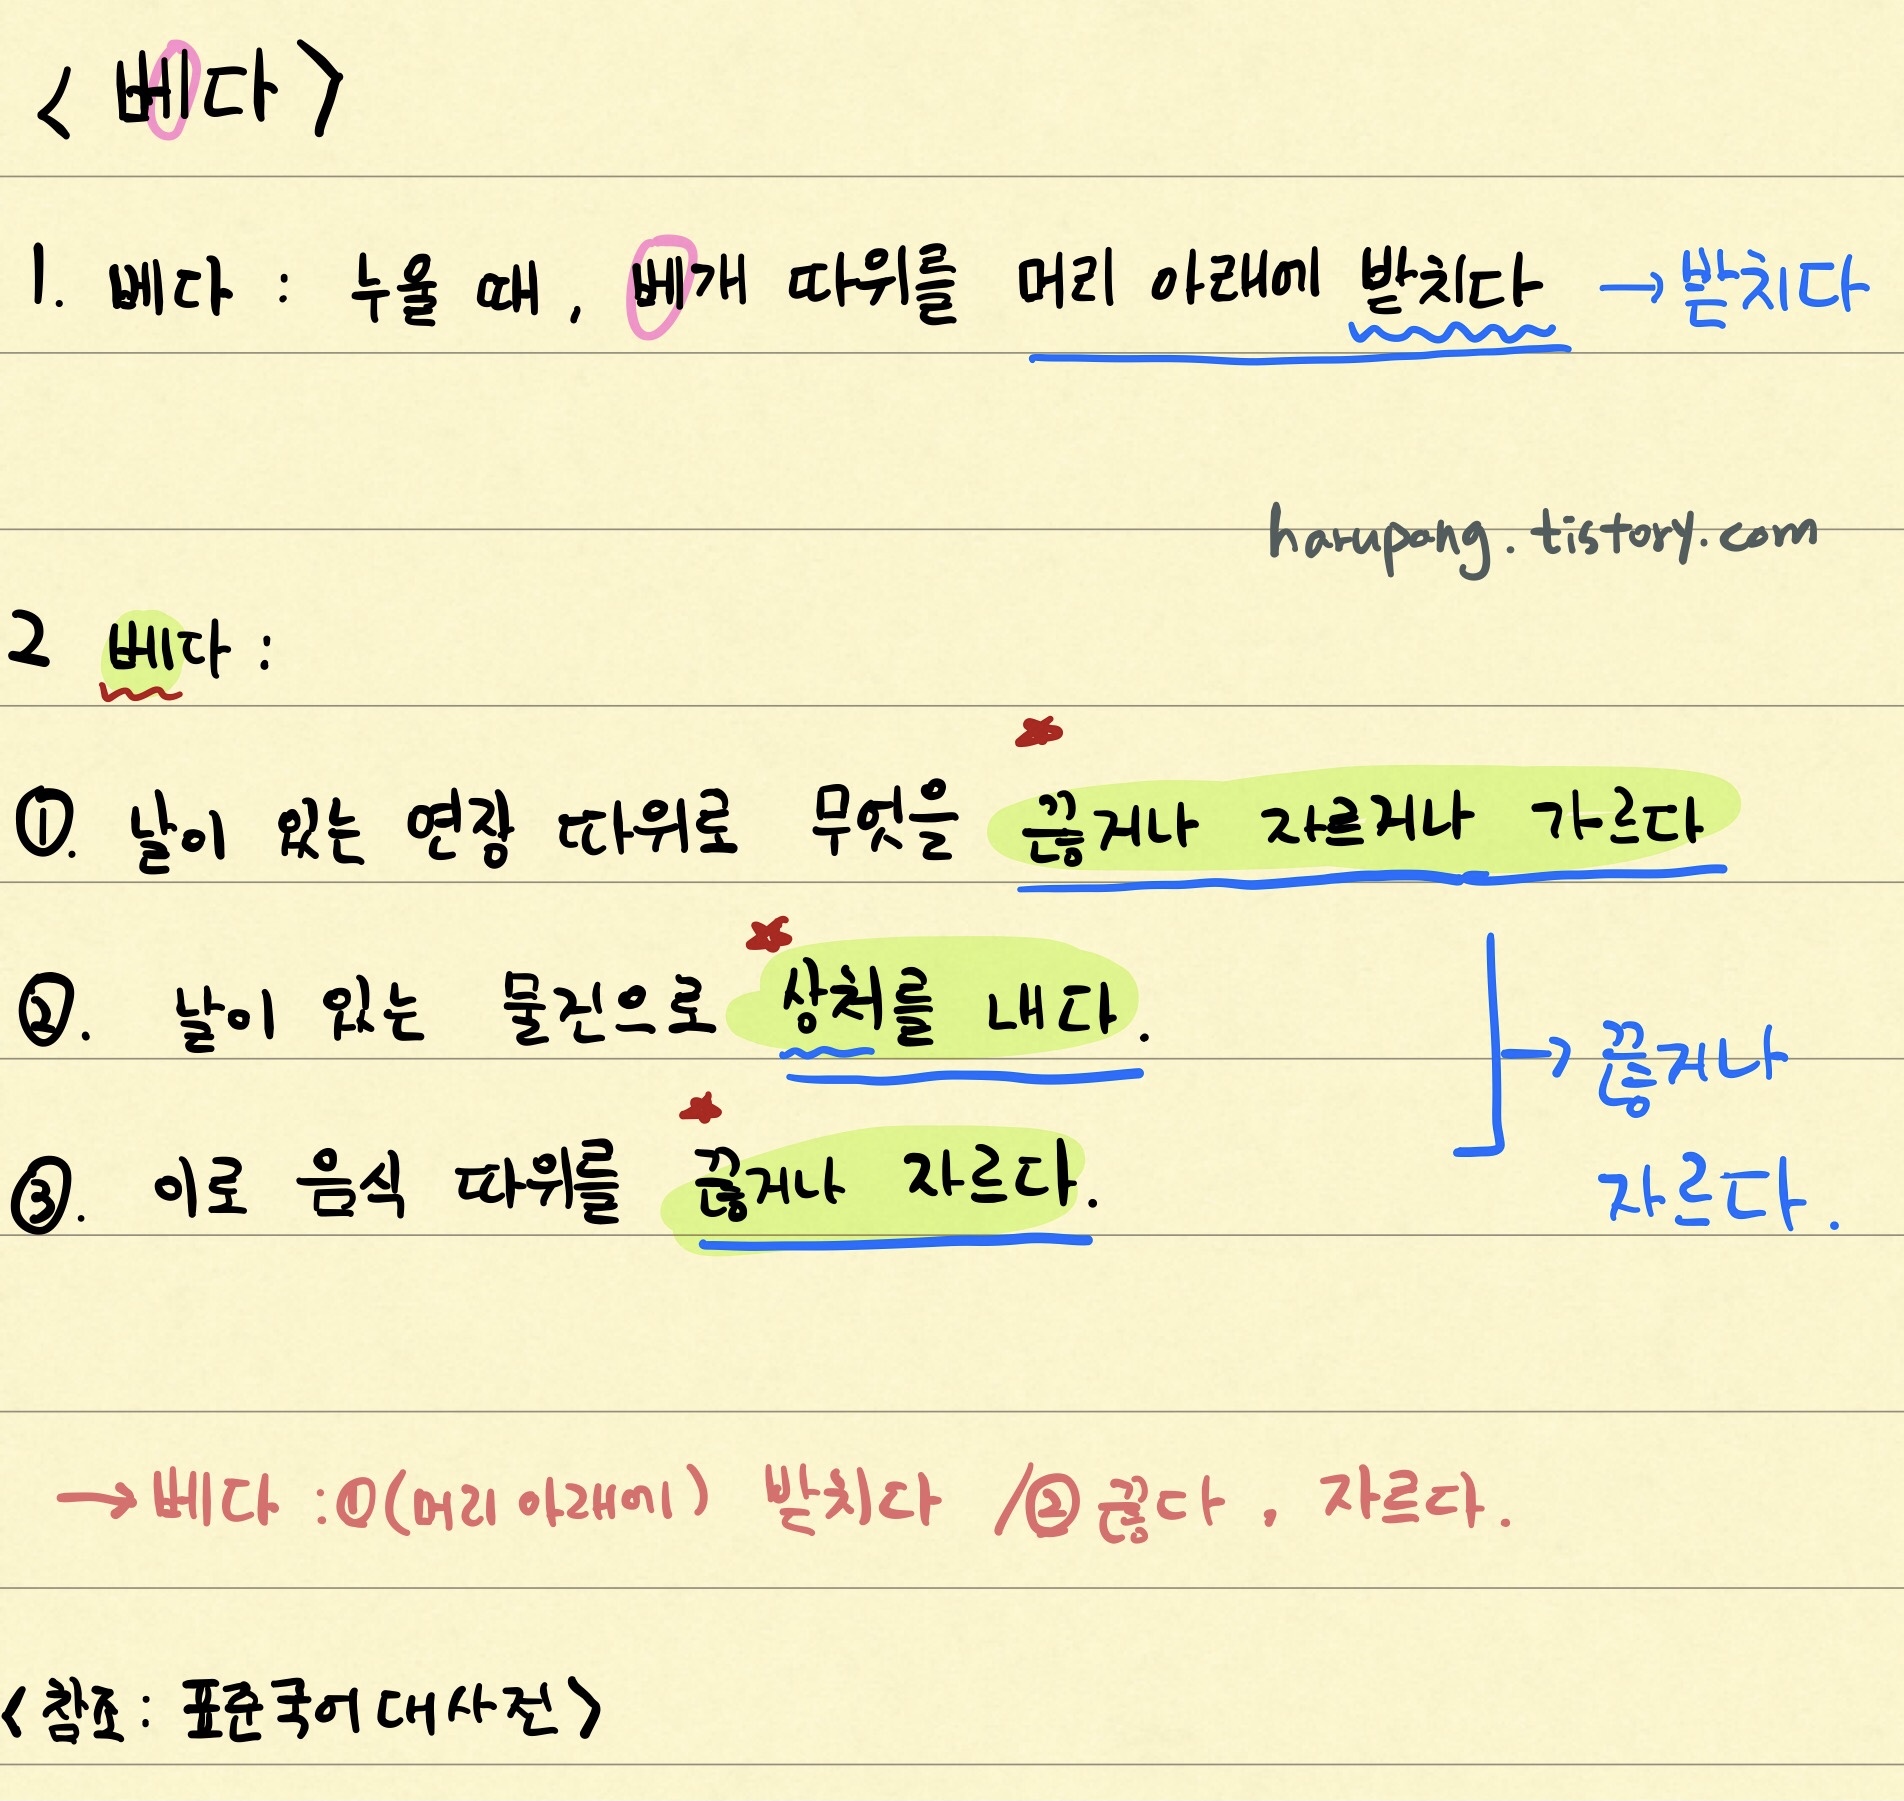 < 베다 >
1. 베다 : 누울 때, 베개 따위를 머리 아래에 받치다 → 받치다
harupang.tistory.com
2 베다 :
①. 날이 있는 연장 따위로 무엇을 끊거나 자르거나 가르다
②. 날이 있는 물건으로 상처를 내다.
③. 이로 음식 따위를 끊거나 자르다.
→ 끊거나
자르다.
→ 베다 : ①(머리 아래에) 받치다 / ② 끊다, 자르다.
<참조: 표준국어대사전>